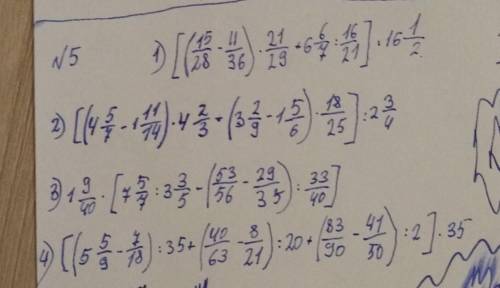 №5 1) [(15/28 - 11/36) · 21/29 + 6 6/7 : 16/21] · 16 1/2
2) [(4 5/7 - 1 11/14) · 4 2/3 + (3 2/9 - 1 5/6) · 18/25] : 2 3/4
3) 1 9/40 · [7 5/7 : 3 3/5 - (53/56 - 29/35) : 33/40]
4) [(5 5/9 - 7/18) : 35 + (40/63 - 8/21) : 20 + (83/90 - 41/50) : 2] · 35